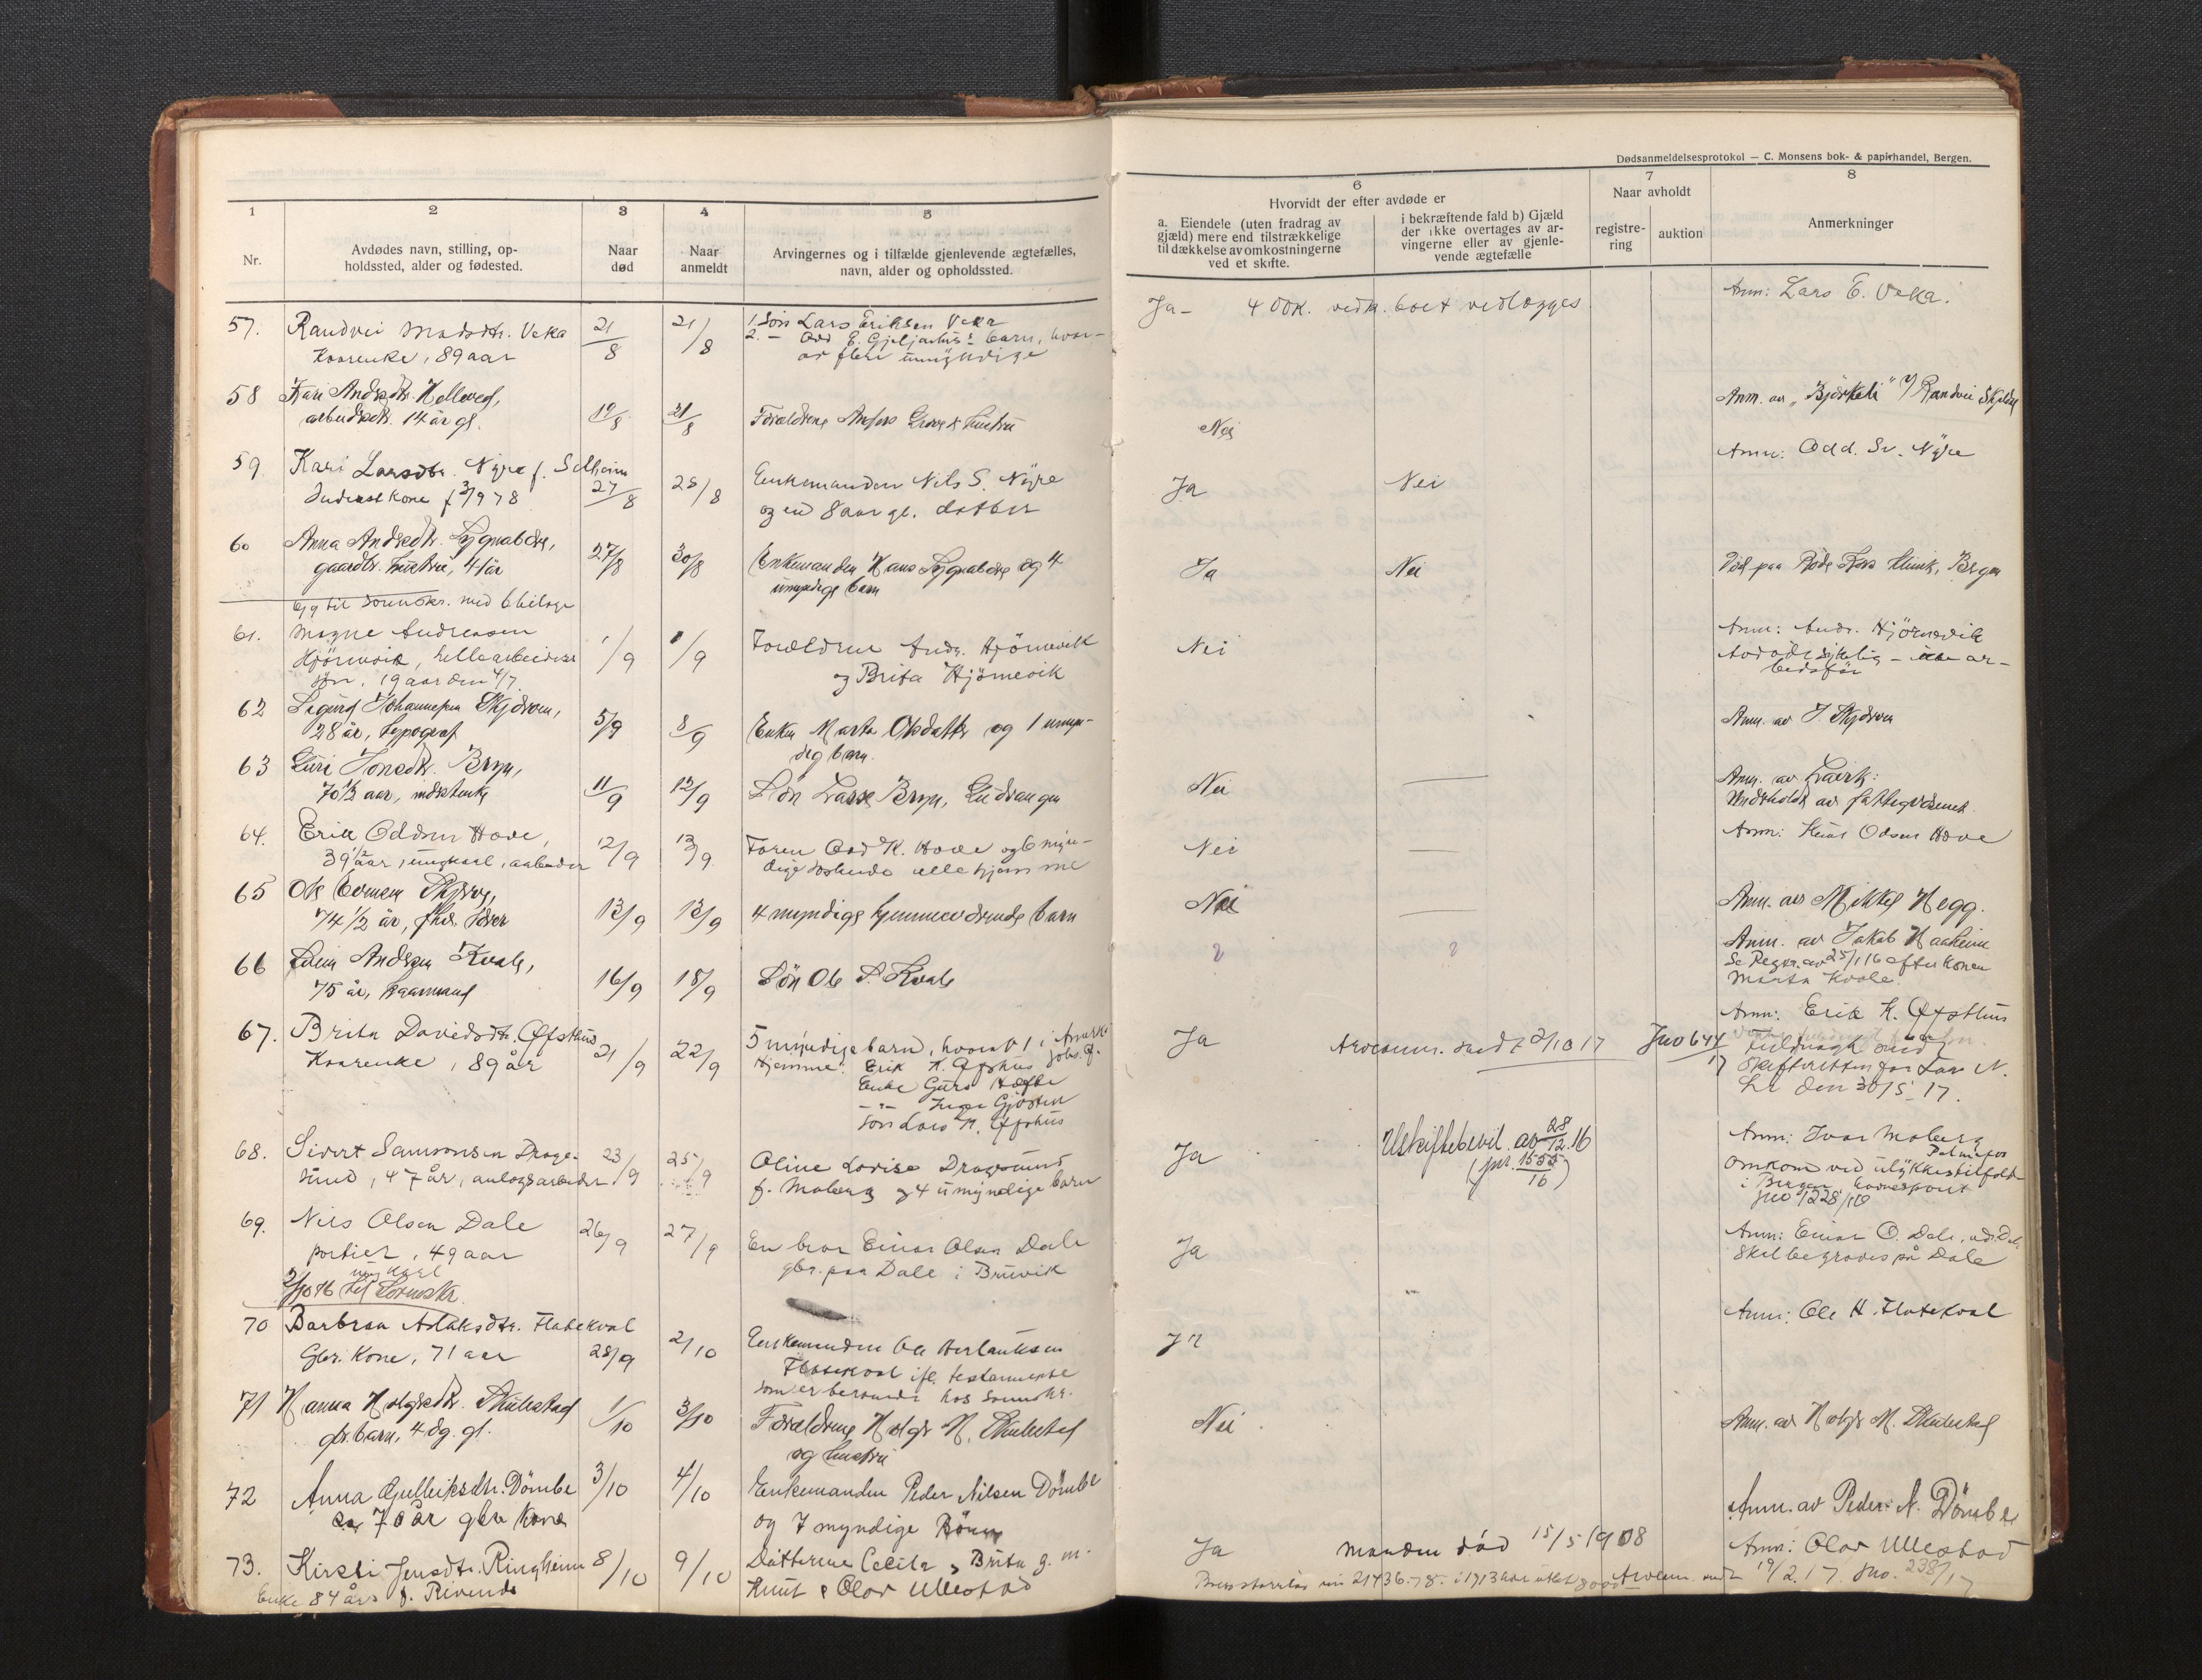 Dødsanmeldelsesprotokol — C. Monsens bok- & papirhandel, Bergen.
1
Nr.
2
Avdødes navn, stilling, op-
holdssted, alder og fødested.
3
Naar
død
4
Naar
anmeldt
5
Arvingernes og i tilfælde gjenlevende ægtefælles,
navn, alder og opholdssted.
6
Hvorvidt der efter avdøde er
a. Eiendele (uten fradrag av
gjæld) mere end tilstrækkelige
til dækkelse av omkostningerne
ved et skifte.
i bekræftende fald b) Gjæld
der ikke overtages av ar-
vingerne eller av gjenle-
vende ægtefælle
7
Naar avholdt
registre-
ring
auktion
8
Anmerkninger
57. Randvei Madsdtr. Veka
Kaarenke, 89 aar
21/8
21/8
1. Søn Lars Eriksen Veka
2. — barn, hvor-
av flere umyndige
Ja — 400 K. vedk. boet vedlægges
Anm: Lars E. Veka.
58 Kari Andrsdtr.
arbeidsdtr. 14 år gl.
19/8
21/8
Forældrene
Nei
Anm. av "Bjørkeli" v/ Randvei
59. Kari Larsdtr. Nyre f. Selheim
kone f 3/9 78
27/8
28/8
Enkemanden Nils S. Nyre
og en 8 aar gl. datter
Ja
Nei
Anm: Odd. Sv. Nyre
60 Anna Andrsdtr.
gaardbr. hustru, 41 år
27/8
30/8
Enkemanden Hans og 4
umyndige barn
Ja
Nei
Død paa Røde Kors Klinik, Bergen
6/9 til Sorenskr. med 6 bilage
61. Magne Andreasen
Hjørnevik, arbeiders
søn, 19 aar den 4/7
1/9
1/9
Forældrene Andr. Hjørnevik
og Brita Hjørnevik
Nei
Anm: Andr. Hjørnevik
Avdøde sykelig — ikke ar-
beidsfør
62 Sigurd Johannesen
28 år, typograf
5/9
8/9
Enken Marta Olsdatter og 1 umyn-
dig barn.
Anm. av J.
63 Guri Jonsdtr. Bryn,
70 1/2 aar,
11/9
12/9
Søn Lasse Bryn, Gudvangen
Nei
Anm. av
Underholdt av fattigvæsenet.
64. Erik Oddsen Hove,
39 1/2 aar, ungkarl, arbeider
12/9
13/9
Faren Odd K. Hove og 6 myn-
dige søskende alle hjemme
Nei
Anm: Knut Odsen Hove
65 Ole
74 1/2 år,
13/9
13/9
4 myndige hjemmeværende barn
Nei
Anm. av Mikkel Hegg.
66 Andersen Kvale,
75 år, Kaarmand
16/9
18/9
Søn Ole S. Kvale
?
?
Anm. av Jakob Haaheim
Se Regpr. av 25/1 16 efter Konen
Marta Kvale
67. Brita Davidsdtr. Øfsthus
Kaarenke, 89 år
21/9
22/9
5 myndige barn, hvorav 1 i Amerika
Hjemme: Erik K. Øfsthus
Enke Guro
Gjøstein
søn Lars K. Øfsthus
Ja
Arveanm. sendt 2/10 17
Jno 644/17
Anm: Erik K. Øfsthus
Fuldmagt sendt
Skifteretten for Lars N.
den 30/5 17.
68. Sivert Samsonsen Drage-
sund, 47 år, anlægsarbeider
23/9
25/9
Oline Lovise Dragesund
f. Moberg og 4 umyndige barn
Ja
Uskiftebevil. av 28/12 16
(jnr. 1555/16)
Anm: Ivar Moberg
Omkom ved ulykkestilfælde
i Bergen,
jno 1228/16
69. Nils Olsen Dale
portier, 49 aar
ungkarl
26/9
27/9
En bror Einar Olsen Dale
gbr. paa Dale i Bruvik
Ja
Anm: Einar O. Dale,
Skal begraves på Dale
2/10 16 til Sorenskr.
70 Barbraa Aslaksdtr. Flatekval
Gbr. Kone, 71 aar
28/9
2/10
Enkemanden Ole Herlauksen
Flatekval ifl. testamente
som er beroende hos Sorenskr.
Ja
Anm: Ole H. Flatekval
71 Hanna Holgersdtr. Skulestad
gbr. barn, 4 dg. gl.
1/10
3/10
Forældrene Holger M. Skulestad
og hustru
Nei
Anm. av Holger M. Skulestad
72 Anna Gullieksdtr. Dömbe
ca 70 år gbr Kone
3/10
4/10
Enkemanden Peder Nilsen Dömbe
og 7 myndige Börn
Anm. av Peder N. Dömbe
73. Kirsti Jensdtr. Ringheim
Enke 84 år f.
8/10
9/10
Døttrene Cecilia, Brita g. m.
Knut & Olav Ullestad
Ja
Manden død 15/5 1908
Anm: Olav Ullestad
i 1913
Arveanm. sendt 19/2 17. Jno. 238/17